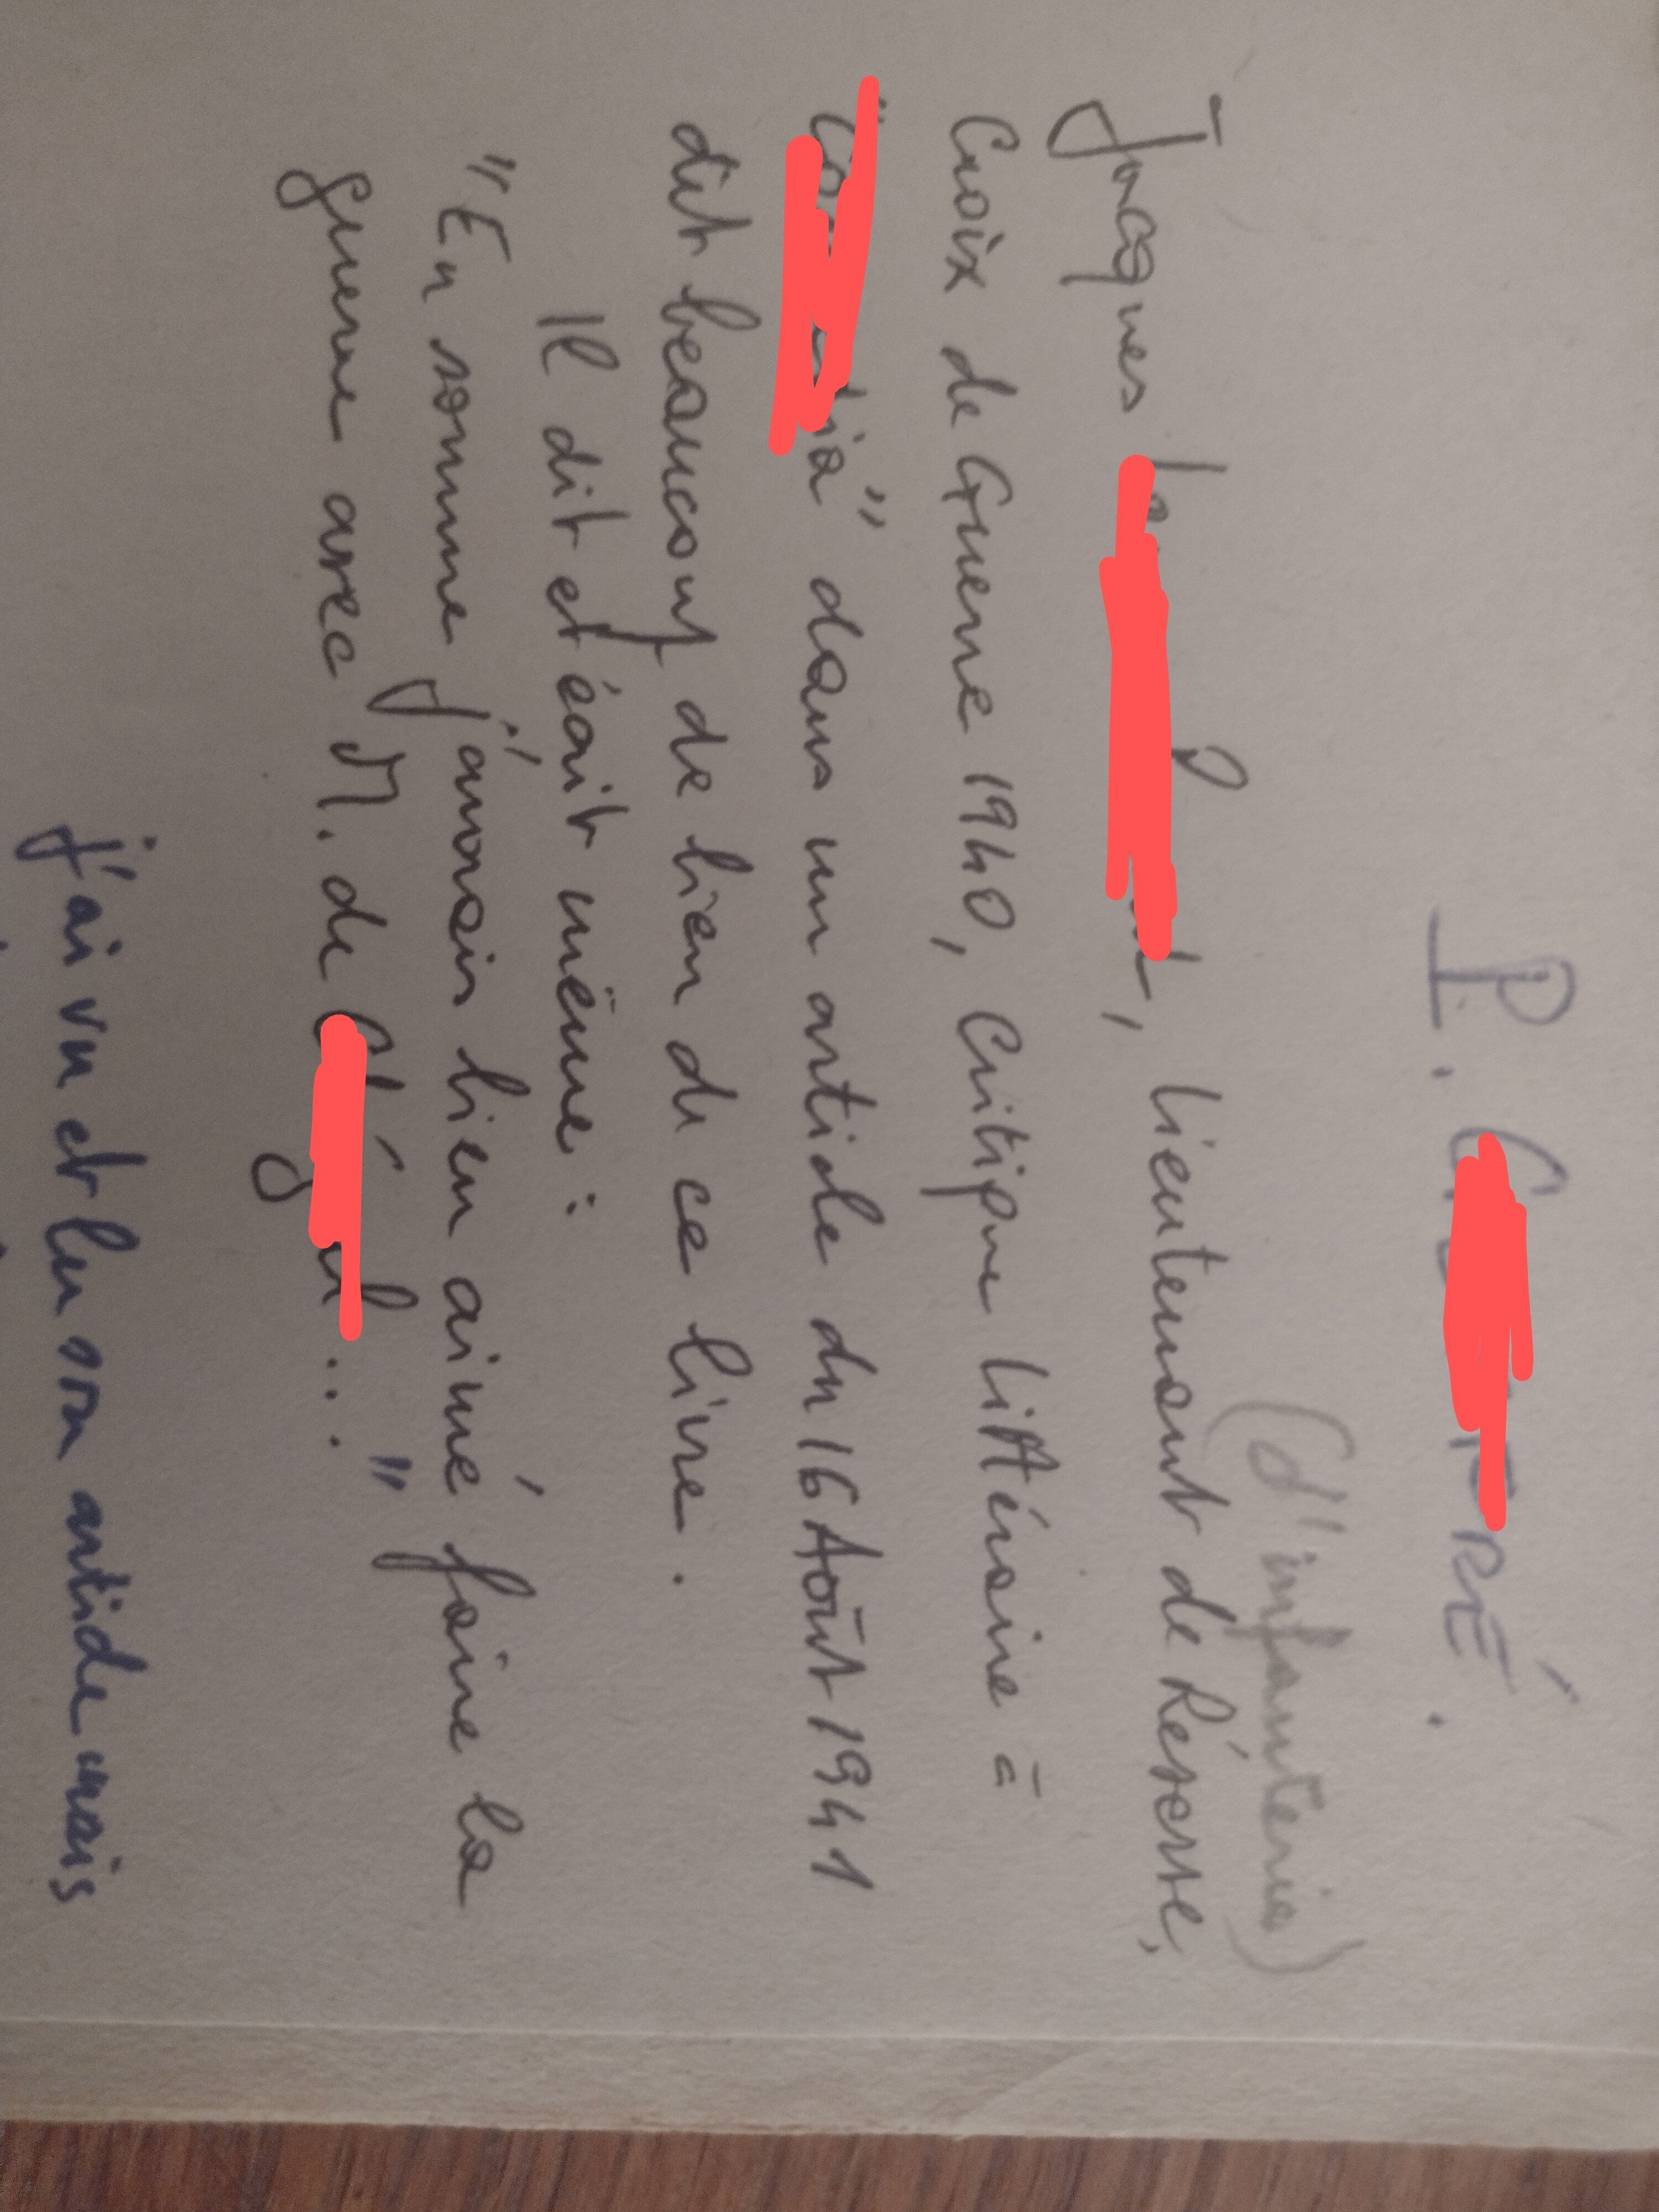 P.
(d'infanterie)
Jacques lieutenant de Réserve,
Croix de Guerre 1940, Critique littéraire à
dans un article du 16 Août 1941
dit beaucoup de bien de ce livre.
Il dit et écrit même :
"En somme j'aurais bien aimé faire la
guerre avec M. de ... "
j'ai vu et lu son article mais